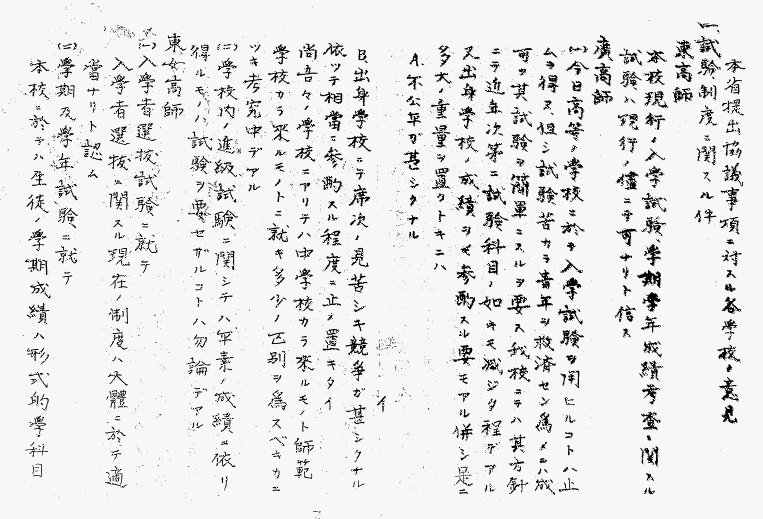 本省提出協議事項ニ対スル各学校ノ意見
一、試験制度ニ関スル件
東高師
本校現行ノ入学試験、学期学年成績考査ニ関スル
試験ハ現行ノ儘ニテ可ナリト信ス
廣高師
(一)今日高等ノ学校ニ於テ入学試験ヲ用ヒルコトハ止
ムヲ得ス、但シ試験苦カラ青年ヲ救済セン為メニハ成
可ク其試験ヲ簡單ニスルヲ要ス我校ニテハ其方針
ニテ近年次第ニ試験科目ノ如キモ減ジタ程デアル
又出身学校ノ成績ヲモ参酌スル要モアル併シ是ニ
多大ノ重量ヲ置クトキニハ
A. 不公平ガ甚シクナル
B. 出身学校ニテ席次ノ見苦シキ競争ガ甚シクナル
依ツテ相當ニ参酌スル程度ニ止メ置キタイ
尚吾々ノ学校ニアリテハ中学校カラ来ルモノト師範
学校カラ来ルモノトニ就キ多少ノ区別ヲ為スベキカニ
ツキ考究中デアル
(二)学校内ノ進級試験ニ関シテハ平素ノ成績ニ依リ
得ルモノハ試験ヲ要セザルコトハ勿論デアル
東女高師
(一)入学者選抜試験ニ就テ
入学者選抜ニ関スル現在ノ制度ハ大體ニ於テ適
當ナリト認ム
(二)学期及学年試験ニ就テ
本校ニ於テハ生徒ノ学期成績ハ形式的學科目